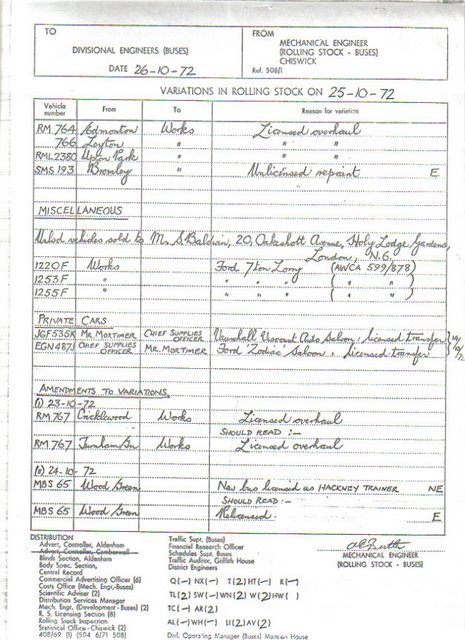 TO
DIVISIONAL ENGINEERS (BUSES)
DATE 26-10-72
FROM
MECHANICAL ENGINEER
(ROLLING STOCK - BUSES)
CHISWICK
Ref. 508/1
VARIATIONS IN ROLLING STOCK ON 25-10-72
Vehicle number From To Reason for variation
RM 764 Edmonton Works Licensed overhaul
766 Leyton " " "
RML 2380 Upton Park " " "
SMS 193 Bromley " Unlicensed repaint E
MISCELLANEOUS
Unlsd vehicles sold to Mr S. Baldwin, 20, Oakeshott Avenue, Holly Lodge Gardens,
London, N.6.
1220F Works Ford 7 ton Lorry (AWCA 599/878)
1253F " " " " ( " " )
1255F " " " " ( " " )
PRIVATE CARS
JGF535K Mr. MORTIMER CHIEF SUPPLIES OFFICER Vauxhall Viscount Auto Saloon, Licensed transfer
EGN487J CHIEF SUPPLIES OFFICER Mr. MORTIMER Ford 'Zodiac' Saloon, Licensed transfer
AMENDMENTS TO VARIATIONS.
(i) 23-10-72
RM 767 Cricklewood Works Licensed overhaul
SHOULD READ :-
RM 767 Turnham Gn Works Licensed overhaul
24-10-72
MBS 65 Wood Green New bus licensed as HACKNEY TRAINER NE
SHOULD READ :-
MBS 65 Wood Green Relicensed. E
DISTRIBUTION
Advert. Controller, Aldenham
Advert. Controller, Camberwell
Blinds Section, Aldenham
Body Spec. Section,
Central Record
Commercial Advertising Officer (6)
Costs Office (Mech. Engr-Buses)
Scientific Advisor (2)
Distribution Services Manager
Mech. Engr, (Development - Buses) (2)
R. S. Licensing Section (8)
Rolling Stock Inspection
Statistical Office - Chiswick (2)
408/69 (I) (504 6/71 508)
Traffic Supt. (Buses)
Financial Research Officer
Schedules Supt. Buses
Traffic Auditor, Griffith House
District Engineers
Q(—) NX(—) T(2) HT(—) R(—)
TL(2) SW(—) WN(2) W(2) HW( )
TC(—) AR(2)
AL(—) WH(—) U(2) AV(2)
Divl. Operating Manager (Buses) Mansion House
MECHANICAL ENGINEER
(ROLLING STOCK - BUSES)